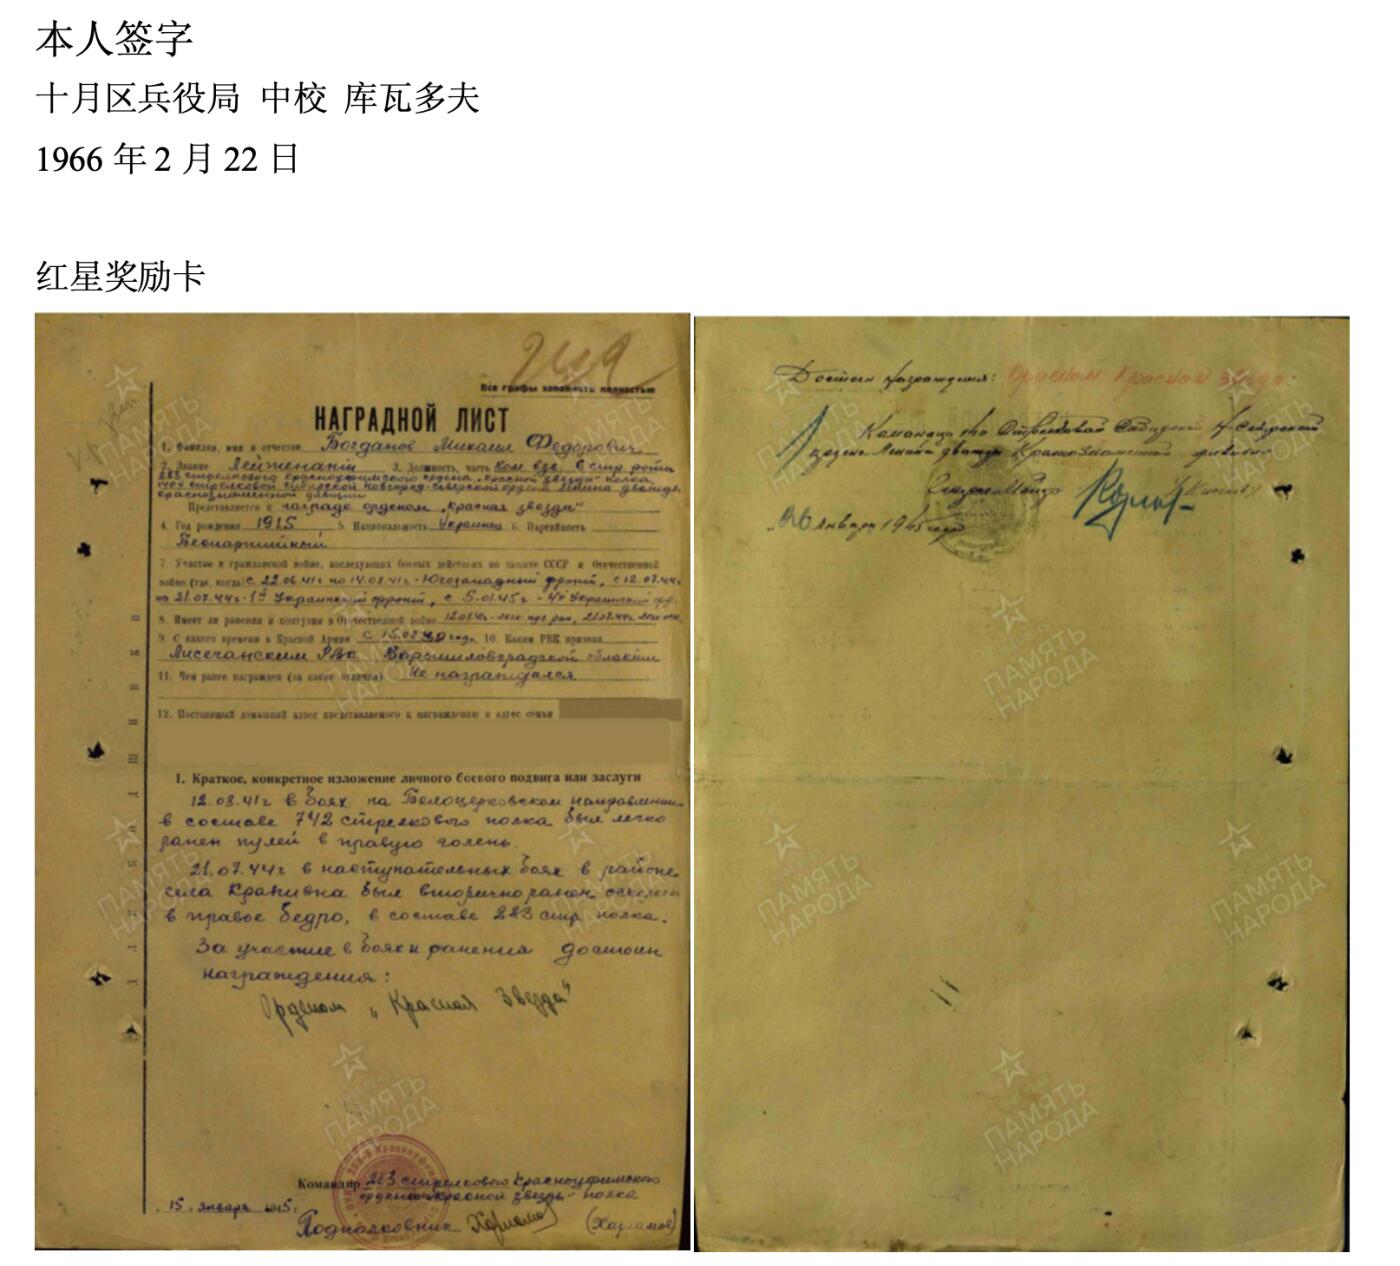 本人签字
十月区兵役局 中校 库瓦多夫
1966 年 2 月 22 日
红星奖励卡
Все графы заполнять полностью
НАГРАДНОЙ ЛИСТ
1. Фамилия, имя и отчество Богданов Михаил Федорович
2. Звание Лейтенант 3. Должность, часть Ком. взв. 6 стр. роты
283 стрелкового краснуфимского ордена „Красной звезды" полка,
140 стрелковой сибирской новгород-северской ордена Ленина дважды
краснознаменной дивизии
Представляется к награде орденом „Красная звезда"
4. Год рождения 1915 5. Национальность Украинец 6. Партийность
Беспартийный
7. Участие в гражданской войне, последующих боевых действиях по защите СССР и Отечественной
войне (где, когда) с 22.06.41г по 14.08.41г - Югозападный фронт, с 12.07.44г
по 21.07.44г - 1й Украинский фронт, с 5.01.45г - 4й Украинский фр.
8. Имеет ли ранения и контузии в Отечественной войне
9. С какого времени в Красной Армии с 15.02.40 года 10. Каким РВК призван
Лисичанским РВК Ворошиловградской области
11. Чем ранее награжден (за какие отличия) Не награждался
12. Постоянный домашний адрес представляемого к награждению и адрес семьи
I. Краткое, конкретное изложение личного боевого подвига или заслуги
12.08.41г в боях на Белоцерковском направлении
в составе 742 стрелкового полка был легко
ранен пулей в правую голень.
21.07.44г в наступательных боях в районе
села Крапивна был вторично ранен осколком
в правое бедро, в составе 283 стр. полка.
За участие в боях и ранения достоин
награждения:
Орденом „Красная Звезда"
Командир 283 стрелкового Краснуфимского
ордена „Красной звезды" полка
15 января 1945г.
Подполковник (Харламов)
Достоин награждения: Орденом Красная звезда.
Командир 140 Стрелковой Сибирской Н-Северской
ордена Ленина дважды Краснознаменной дивизии
Генерал-Майор
„26" января 1945 года
ПАМЯТЬ
НАРОДА